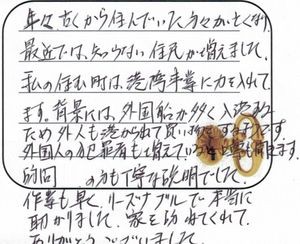 年々古くから住んでいた方々が亡くなり
最近では、知らない住民が増えました。
私の住む町は、港湾事業に力を入れて
ます。背景には、外国船が多く入港
ため外人も港から出て買い物をするようです。
外国人の犯罪者も増えている
的
の方も丁寧な説明でした。
作業も早く、リーズナブルで本当に
助かりました。家を守ってくれて
ありがとうございました。